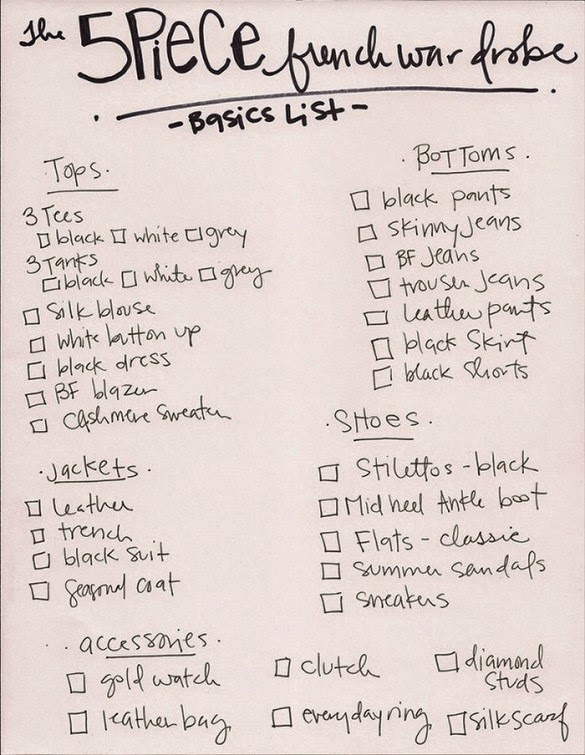 The 5 Piece french wardrobe
- Basics List -
Tops.
3 Tees
black white grey
3 Tanks
black white grey
Silk blouse
white button up
black dress
BF blazer
Cashmere Sweater
. Jackets .
leather
trench
black suit
Seasonal coat
. BOTTOMS .
black pants
skinny jeans
BF Jeans
trouser jeans
leather pants
black Skirt
black Shorts
. SHOES .
Stilettos - black
Mid heel Ankle boot
Flats - classic
summer sandals
sneakers
. . accessories .
gold watch
leather bag
clutch
everyday ring
diamond
studs
silk scarf